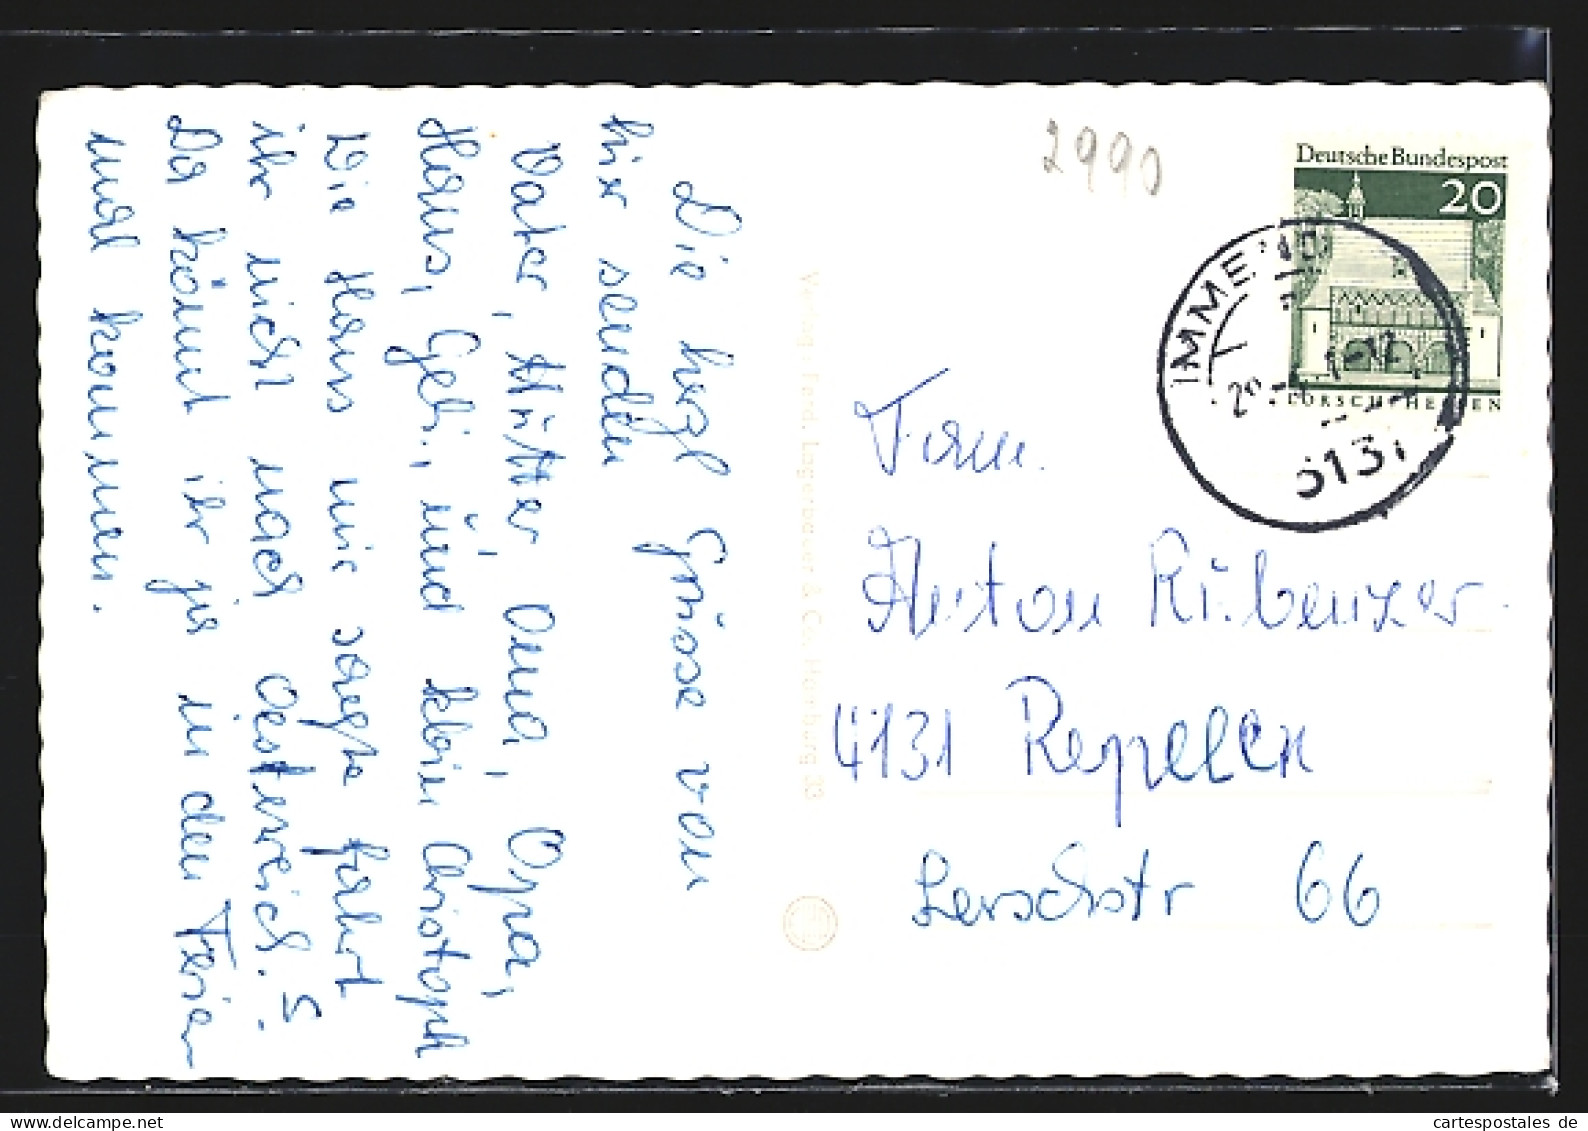 Die herzl Grüsse von
hier senden
Vater, Mutter, Oma, Opa,
Hans, Gebi, und klein Christoph
Wie Hans mir sagte fahrt
ihr nicht nach Oesterreich.
Da könnt ihr ja in den Ferien
mal kommen.
2990
Deutsche Bundespost
20
LORSCH/HESSEN
IMMEN
513
Fam.
Anton Rübenzer
4131 Repelen
Lerschstr 66
Verlag Ferd. Lagerbauer & Co., Hamburg 33
cartespostales de